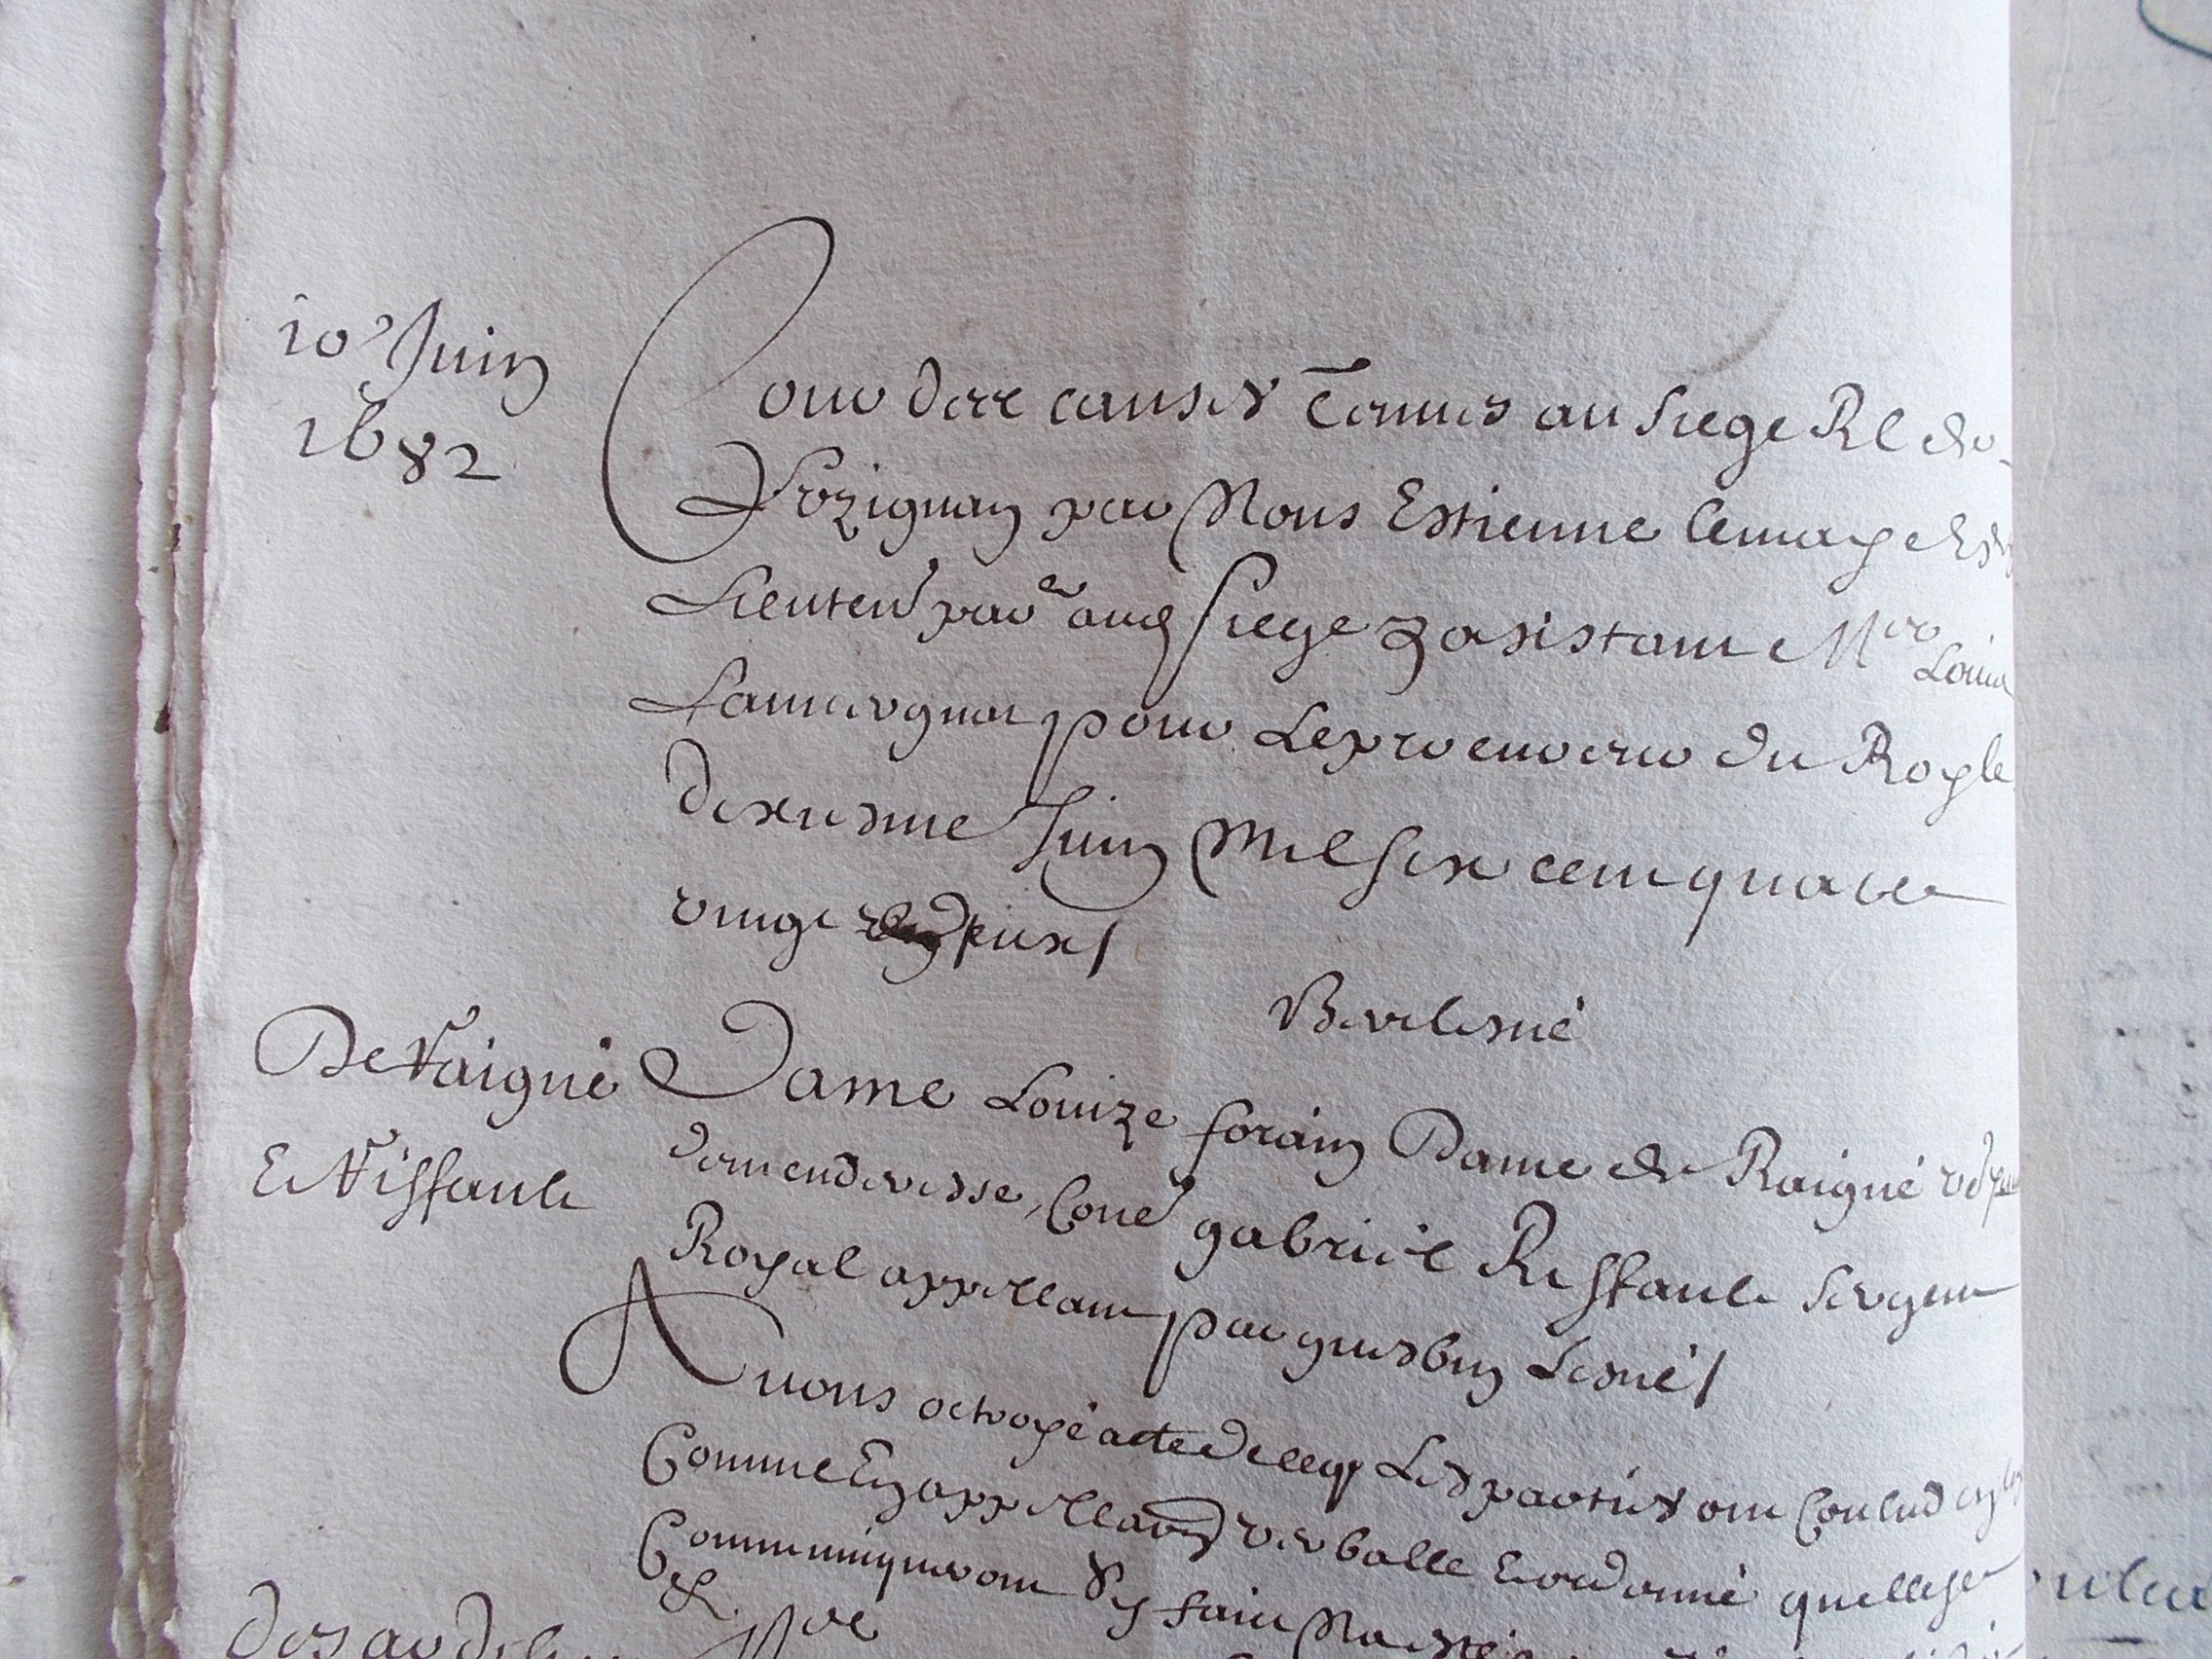 10e Juin
1682
Cour des causes Tenues au siege Rl de
Lezignan par Nous Estienne Lemaye
Lieuten par aud siege y asistant Mre Louis
pour Le procureur du Roy le
dixiesme Juin Mil six cent quatre
vingt deux /
Berlesné
De Raigné
Et Riffault
Dame Louize forain Dame de Raigné
demenderesse, Cone gabriel Riffault sergent
Royal appellant par guesbin Lesné /
Avons octroyé acte de ce q Les parties ont Conclud
Comme En appellaon verballe Et ordonné quelles
Communiqueront sy fait